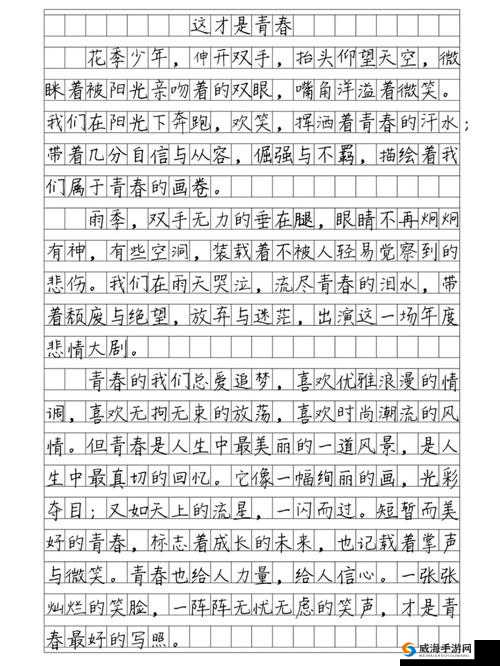 这才是青春
花季少年，伸开双手，抬头仰望天空，微
眯着被阳光亲吻着的双眼，嘴角洋溢着微笑。
我们在阳光下奔跑，欢笑，挥洒着青春的汗水；
带着几分自信与从容，倔强与不羁，描绘着我
们属于青春的画卷。
雨季，双手无力的垂在腿，眼睛不再炯炯
有神，有些空洞，装载着不被人轻易觉察到的
悲伤。我们在雨天哭泣，流尽青春的泪水，带
着颓废与绝望，放弃与迷茫，出演这一场年度
悲情大剧。
青春的我们总爱追梦，喜欢优雅浪漫的情
调，喜欢无拘无束的放荡，喜欢时尚潮流的风
情。但青春是人生中最美丽的一道风景，是人
生中最真切的回忆。它像一幅绚丽的画，光彩
夺目；又如天上的流星，一闪而过。短暂而美
好的青春，标志着成长的未来，也记载着掌声
与微笑。青春也给人力量，给人信心。一张张
灿烂的笑脸，一阵阵无忧无虑的笑声，才是青
春最好的写照。
威海手游网